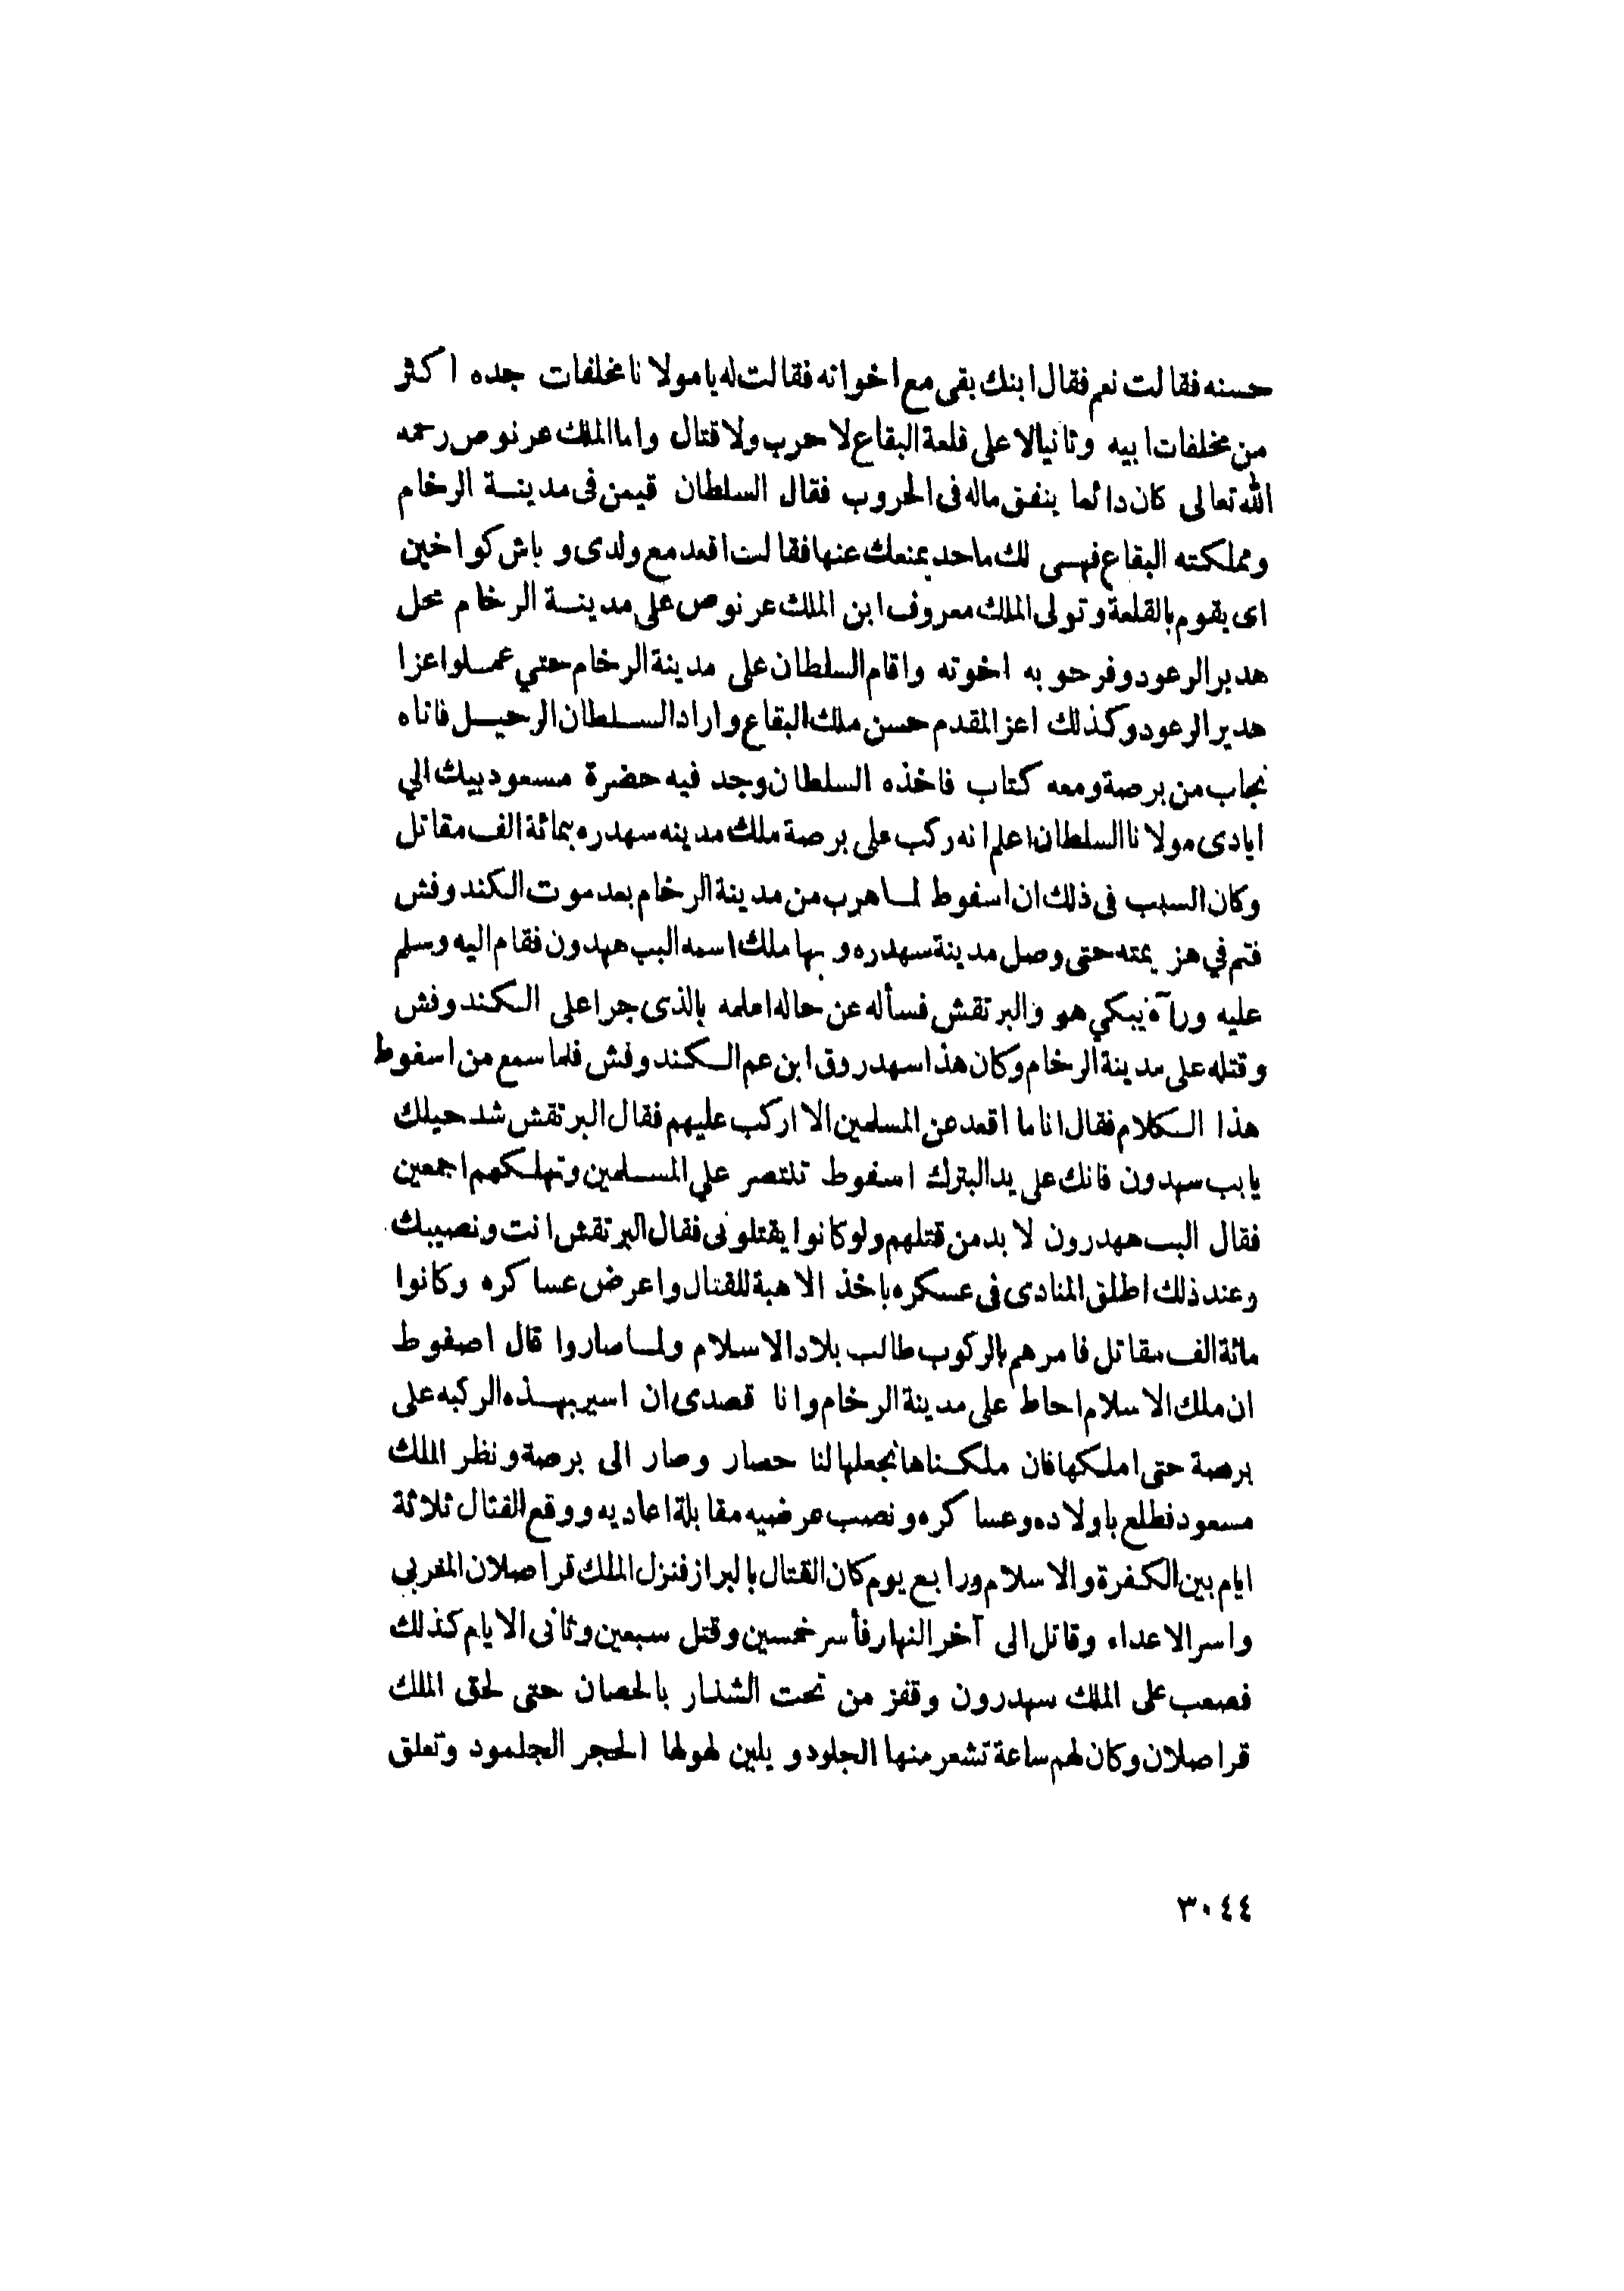 حسنه فقالت نعم فقال ابنك بقى مع اخوانه فقالت له يا مولانا مخلفات جده اكثر
من مخلفات ابيه وثانيا لا على قلعة البقاع لا حرب ولا قتال واما الملك عرنوص رحمه
الله تعالى كان دائما ينفق ماله فى الحروب فقال السلطان قيمن فى مدينة الرخام
ومملكته البقاع فهى لك ما حد يمنعك عنها فقالت اقعد مع ولدى و باش كواخين
اى يقوم بالقلعة وتولى الملك معروف ابن الملك عرنوص على مدينة الرخام محل
هدير الرعود وفرحو به اخوته واقام السلطان على مدينة الرخام حتي عملوا عزا
هدير الرعود وكذلك اعز المقدم حسن ملك البقاع واراد السلطان الرحيل فاتاه
نجاب من برصة ومعه كتاب فاخذه السلطان وجد فيه حضرة مسعود بيك الي
ايادى مولانا السلطان اعلم انه ركب على برصة ملك مدينه سهدره بمائة الف مقاتل
وكان السبب فى ذلك ان اسفوط لما هرب من مدينة الرخام بعد موت الكندوفش
فتم في هزيمته حتى وصل مدينة سهدره و بها ملك اسمه البب هبدون فقام اليه وسلم
عليه ورآه يبكي هو والبرتقش فسأله عن حاله اعلمه بالذى جرا على الكندوفش
وقتله على مدينة الرخام وكان هذا سهدروق ابن عم الكندوفش فلما سمع من اسفوط
هذا الكلام فقال انا ما اقعد عن المسلمين الا اركب عليهم فقال البرتقش شد حيلك
يا بب سهدون فانك على يد البترك اسفوط تنتصر علي المسلمين وتهلكهم اجمعين
فقال البب ههدرون لا بد من قتلهم ولو كانوا يقتلونى فقال البرتقش انت ونصيبك
وعند ذلك اطلق المنادى فى عسكره باخذ الاهبة للقتال واعرض عساكره وكانوا
مائة الف مقاتل فامرهم بالركوب طالب بلاد الاسلام ولما صاروا قال اصفوط
ان ملك الاسلام احاط على مدينة الرخام وانا قصدى ان اسير بهذه الركبه على
برصة حتى املكها فان ملكناها نجعلها لنا حصار وصار الى برصة ونظر الملك
مسعود فطلع باولاده وعساكره ونصب عرضيه مقابلة اعاديه ووقع القتال ثلاثة
ايام بين الكفرة والاسلام ورابع يوم كان القتال بالبراز فنزل الملك قراصلان المغربى
واسر الاعداء وقاتل الى آخر النهار فأسر خمسين وقتل سبعين وثانى الايام كذلك
فصعب على الملك سهدرون وقفز من تحت الشنار بالحصان حتى لحق الملك
قراصلان وكان لهم ساعة تشعر منها الجلود و يلين لهولها الحجر الجلمود وتعلق
٣٠٤٤